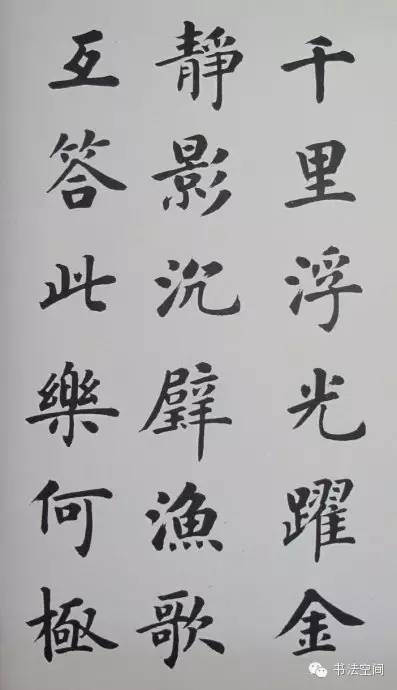 千里浮光躍金
靜影沉璧漁歌
互答此樂何極
书法空间